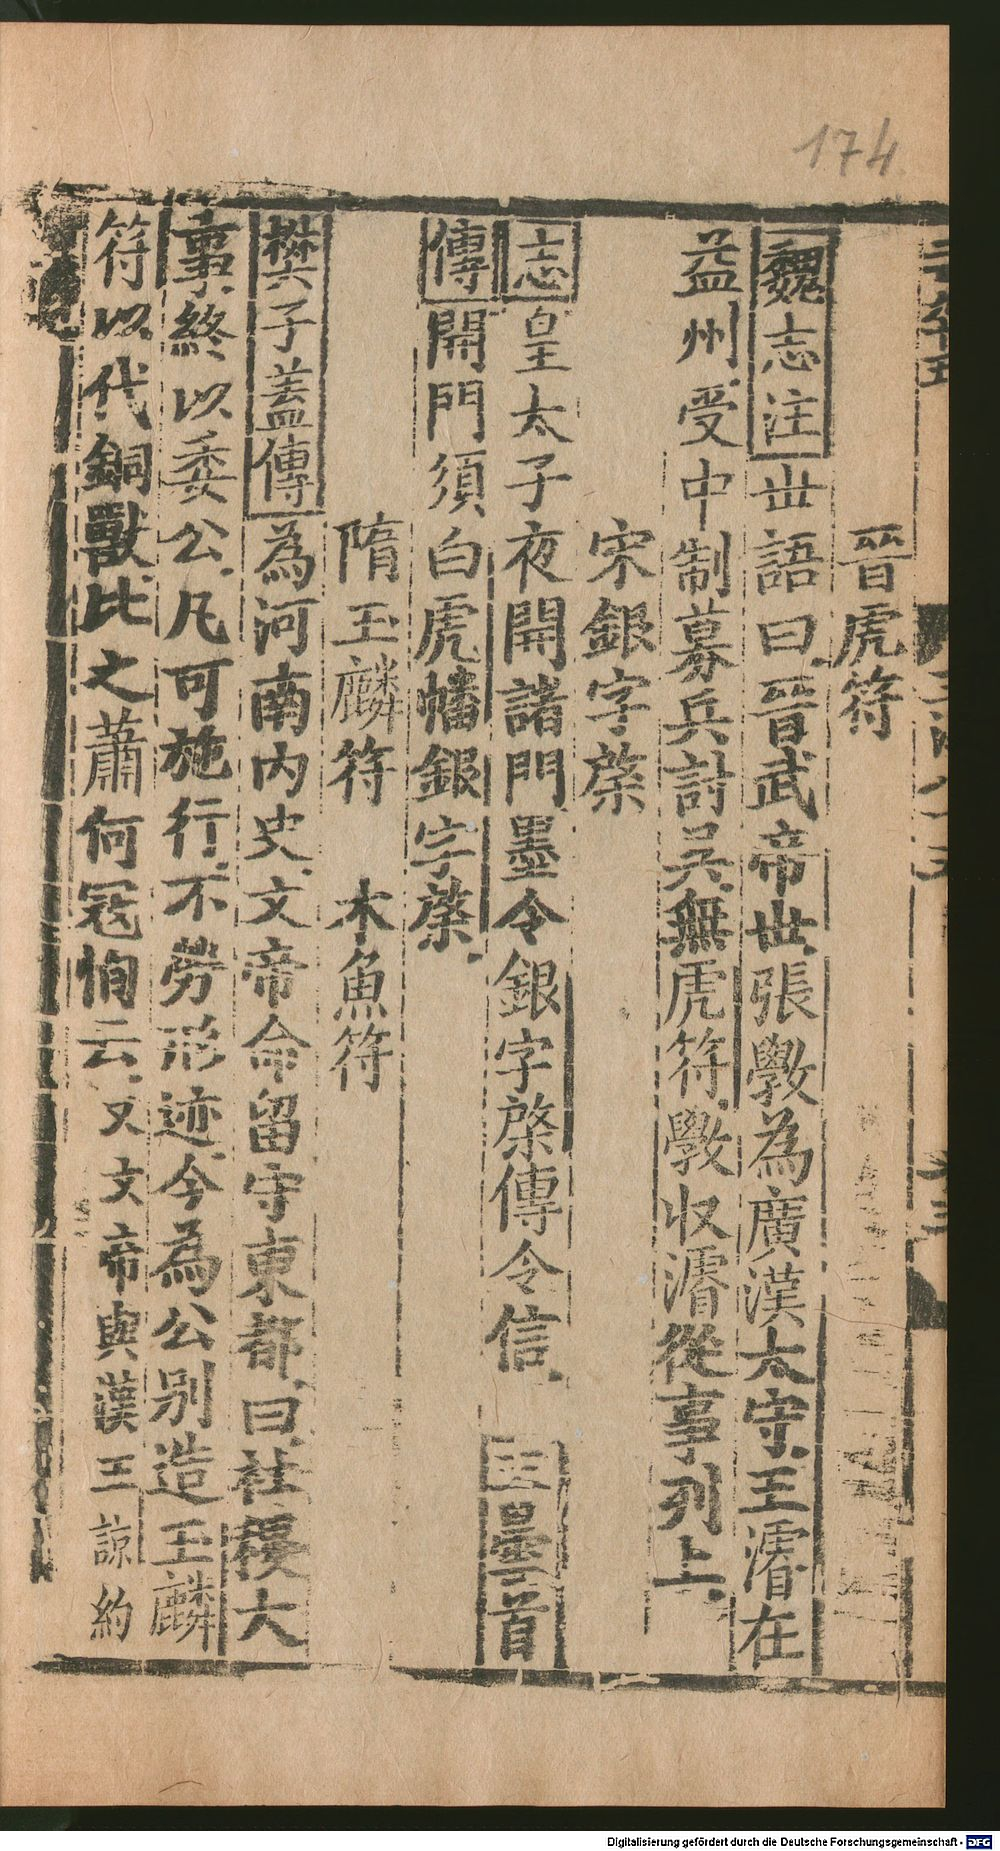 174
晉虎符
魏志注世語曰晉武帝世張斆為廣漢太守王濬在
益州受中制募兵討吳無虎符斆収濬從事列上
宋銀字棨
志皇太子夜開諸門墨令銀字棨傳令信 王曇首
傳開門須白虎幡銀字棨
隋玉麟符 木魚符
樊子蓋傳為河南内史文帝命留守東都曰社稷大
事終以委公凡可施行不勞形迹今為公別造玉麟
符以代銅獸比之蕭何冦恂云又文帝與漢王諒約
Digitalisierung gefördert durch die Deutsche Forschungsgemeinschaft - DFG